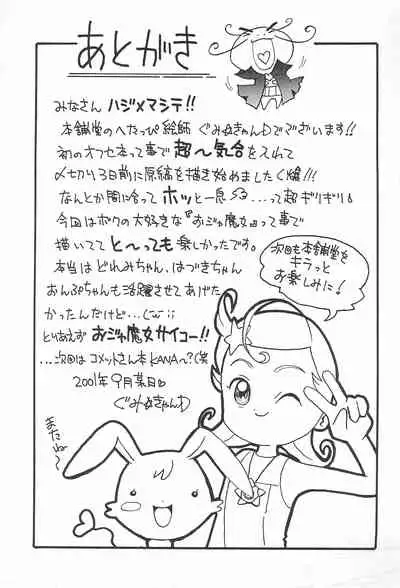 あとがき
みなさん ハジメマシテ!!
本舗堂のへたっぴ絵師 ぐみきゃんDでございます!!
初のオフセ本って事で超〜気合を入れて
〆切り3日前に原稿を描き始めました(爆)!!
なんとか間に合ってホッと一息 ...って超ギリギリ♪
今回はボクの大好きな『おジャ魔女』って事で
描いてて と〜っても 楽しかったです。
本当は どれみちゃん、はづきちゃん
おんぷちゃんも活躍させてあげた
かったんだけど...(;ω;;
とりあえず おジャ魔女サイコー!!
...次回はコメットさん本KANA〜?(笑
2001年9月某日
ぐみきゃんD
次回も本舗堂を
キラっと
お楽しみに!
またね〜